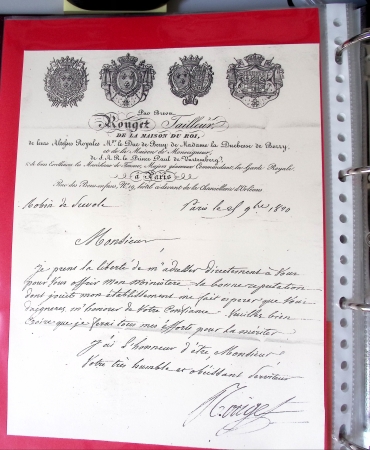 Par Brevet
Rouget Tailleur
DE LA MAISON DU ROI,
de leurs Altesses Royales Mgr. le Duc de Berry, de Madame la Duchesse de Berry,
et de la Maison de Monsieur,
de S. A. R. le Prince Paul de Vurtemberg,
Major général Commandant la Garde Royale,
à Paris
Rue des Bons-enfans, No. 19, hôtel de la Chancellerie d'Orléans
Robin de Scevole Paris le 9bre 1820
Monsieur,
je prens la liberté de m'adresser directement à Vous
pour Vous offrir mon Ministère. la bonne réputation
dont jouit mon établissement me fait espérer que Vous
daignerez m'honorer de Votre Confiance. Veuillez bien
Croire que je ferai tous mes efforts pour la mériter
j'ai l'honneur d'être Monsieur
Votre très humble et obéissant Serviteur
Rouget